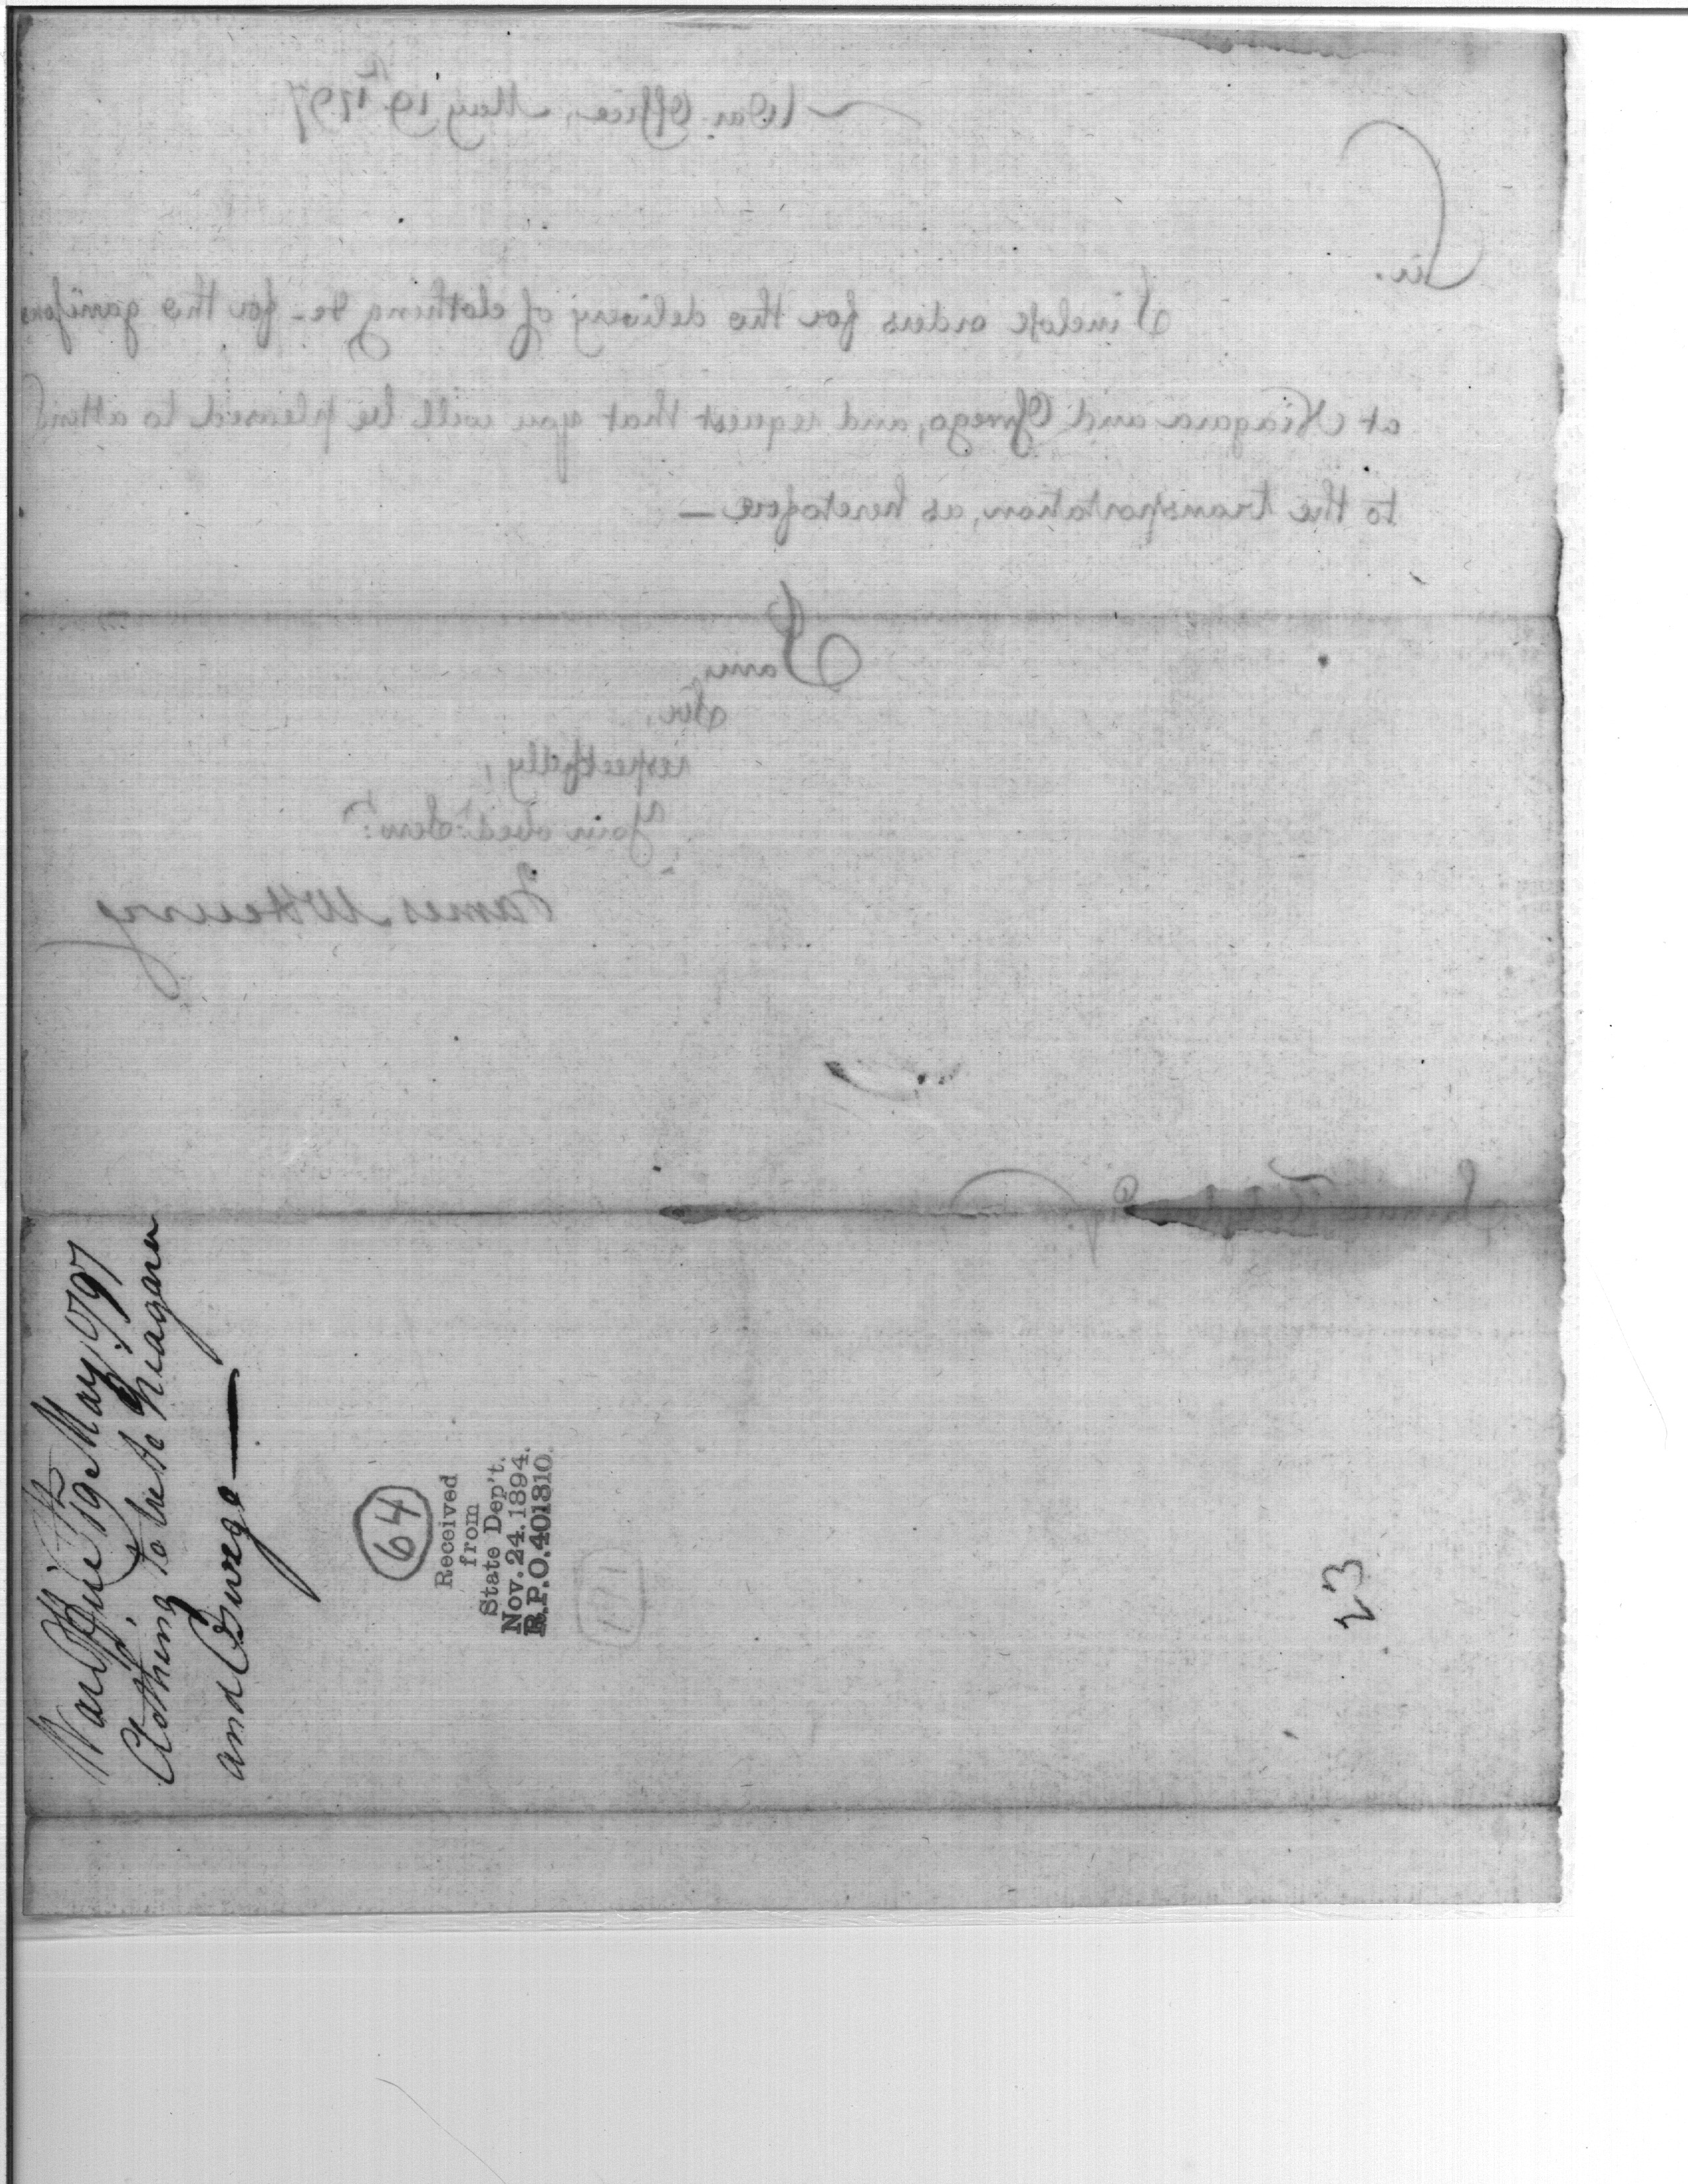 War Office, May 19th 1797
Sir.
I inclose orders for the delivery of clothing &c. for the garrisons
at Niagara and Oswego, and request that you will be pleased to attend
to the transportation, as heretofore —
I am,
Sir,
respectfully,
Your obed: Servt:
James McHenry
War Office 19th May 1797
Clothing to be to Niagara
and Oswego —
64
Received
from
State Dep't.
Nov. 24. 1894.
R.P.O. 401810.
23